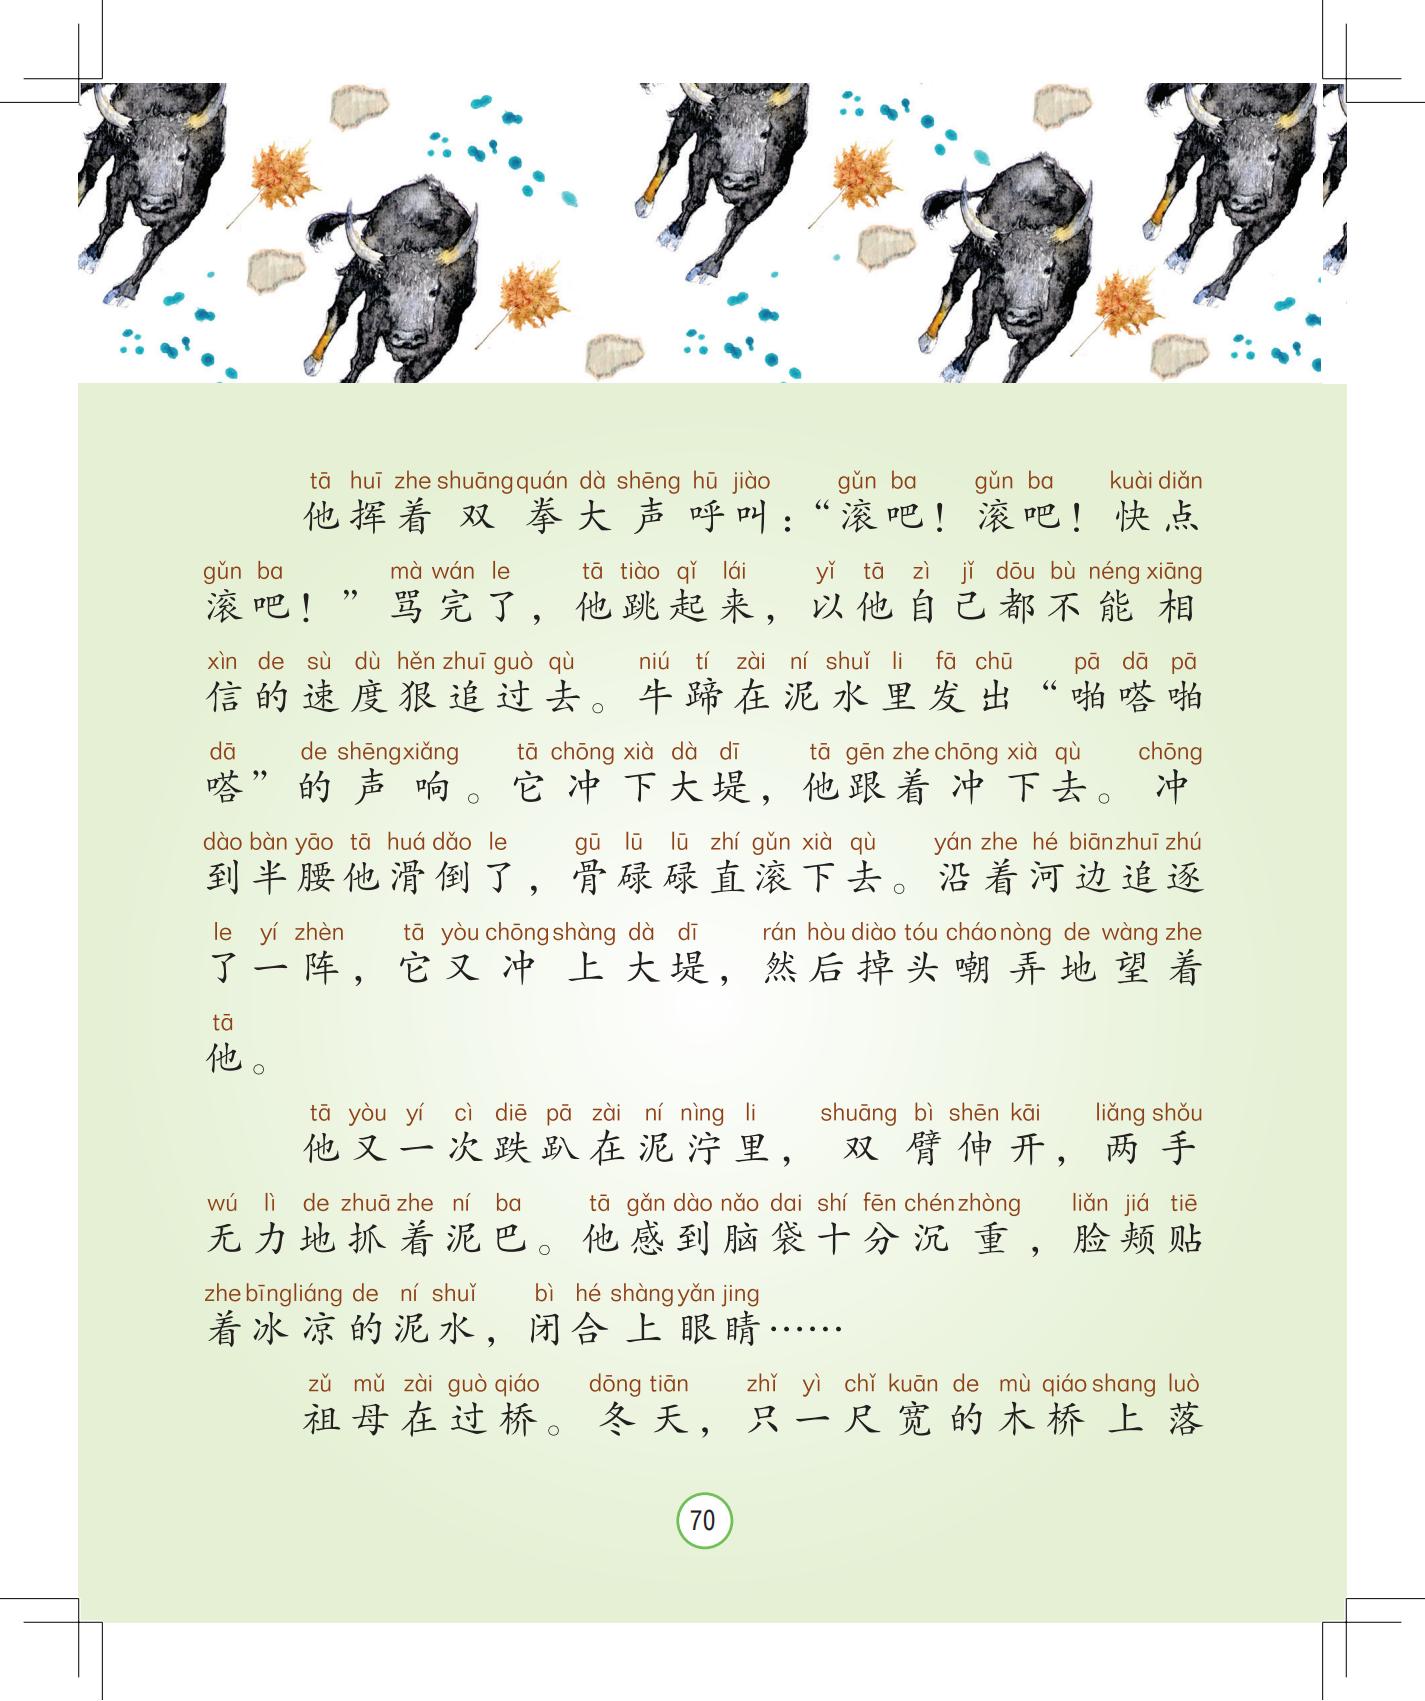 tā huī zhe shuāng quán dà shēng hū jiào gǔn ba gǔn ba kuài diǎn
他挥着双拳大声呼叫：“滚吧！滚吧！快点
gǔn ba mà wán le tā tiào qǐ lái yǐ tā zì jǐ dōu bù néng xiāng
滚吧！”骂完了，他跳起来，以他自己都不能相
xìn de sù dù hěn zhuī guò qù niú tí zài ní shuǐ li fā chū pā dā pā
信的速度狠追过去。牛蹄在泥水里发出“啪嗒啪
dā de shēng xiǎng tā chōng xià dà dī tā gēn zhe chōng xià qù chōng
嗒”的声响。它冲下大堤，他跟着冲下去。冲
dào bàn yāo tā huá dǎo le gū lū lū zhí gǔn xià qù yán zhe hé biān zhuī zhú
到半腰他滑倒了，骨碌碌直滚下去。沿着河边追逐
le yí zhèn tā yòu chōng shàng dà dī rán hòu diào tóu cháo nòng de wàng zhe
了一阵，它又冲上大堤，然后掉头嘲弄地望着
tā
他。
tā yòu yí cì diē pā zài ní nìng li shuāng bì shēn kāi liǎng shǒu
他又一次跌趴在泥泞里，双臂伸开，两手
wú lì de zhuā zhe ní ba tā gǎn dào nǎo dai shí fēn chén zhòng liǎn jiá tiē
无力地抓着泥巴。他感到脑袋十分沉重，脸颊贴
zhe bīng liáng de ní shuǐ bì hé shàng yǎn jing
着冰凉的泥水，闭合上眼睛……
zǔ mǔ zài guò qiáo dōng tiān zhǐ yì chǐ kuān de mù qiáo shang luò
祖母在过桥。冬天，只一尺宽的木桥上落
70